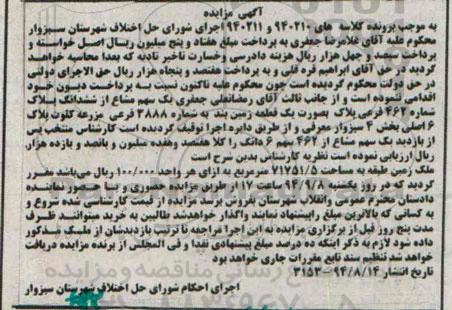 آگهی مزایده
به موجب پرونده کلاسه های ۹۴۰۲۱۰ و ۹۴۰۲۱۱ اجرای شورای حل اختلاف شهرستان سبزوار
محکوم علیه آقای غلامرضا جعفری به پرداخت مبلغ هفتاد و پنج میلیون ریال اصل خواسته و
پرداخت و چهل هزار ریال هزینه دادرسی وخسارت تاخیر تادیه که بعدا محاسبه خواهد
گردید در حق آقای ابراهیم قره قلی و به پرداخت هفتصد و پنجاه هزار ریال حق الاجرای دولتی
در حق دولت محکوم گردیده است چون محکوم علیه تاکنون نسبت به پرداخت دیون خود
اقدامی ننموده است و از جانب ثالث آقای رمضانعلی جعفری یک سهم مشاع از ششدانگ پلاک
شماره ۴۶۲ فرعی پلاک بصورت یک قطعه زمین بند به شماره ۳۸۸۸ فرعی مزرعه کلوت پلاک
۶ اصلی بخش ۴ سبزوار معرفی و از طریق دایره اجرا توقیف گردیده است کارشناس منتخب پس
از بازدید یک سهم مشاع از ۴۶۲ سهم ۶ دانگ را کلا هفتصد وهفده میلیون و پانصد و یازده هزار
ریال ارزیابی نموده است نظریه کارشناس بدین شرح است
ملک زمین طبقه به مساحت ۷۱۷۵۱/۵ مترمربع به ازای هر واحد ۱۰۰/۰۰۰ ریال می‌باشد مقرر
گردید که در روز یکشنبه ۹۴/۹/۸ ساعت ۱۲ از طریق مزایده حضوری و با حضور نماینده
دادستان محترم عمومی وانقلاب شهرستان بفروش برسد مزایده از قیمت کارشناسی شده شروع و
به کسانی که بالاترین مبلغ راپیشنهاد نمایند واگذار خواهدشد طالبین به خرید میتوانند ظرف
مدت پنج روز قبل از برگزاری مزایده به این اجرا مراجعه تا ترتیب بازدیدشان از ملک مذکور
داده شود لازم به ذکر اینکه ده درصد مبلغ پیشنهادی نقدا و فی المجلس از برنده مزایده دریافت
خواهد شد تنظیم سند تابع مقررات جاری خواهد بود
تاریخ انتشار ۹۴/۸/۱۴- ۳۱۵۳
اجرای احکام شورای حل اختلاف شهرستان سبزوار